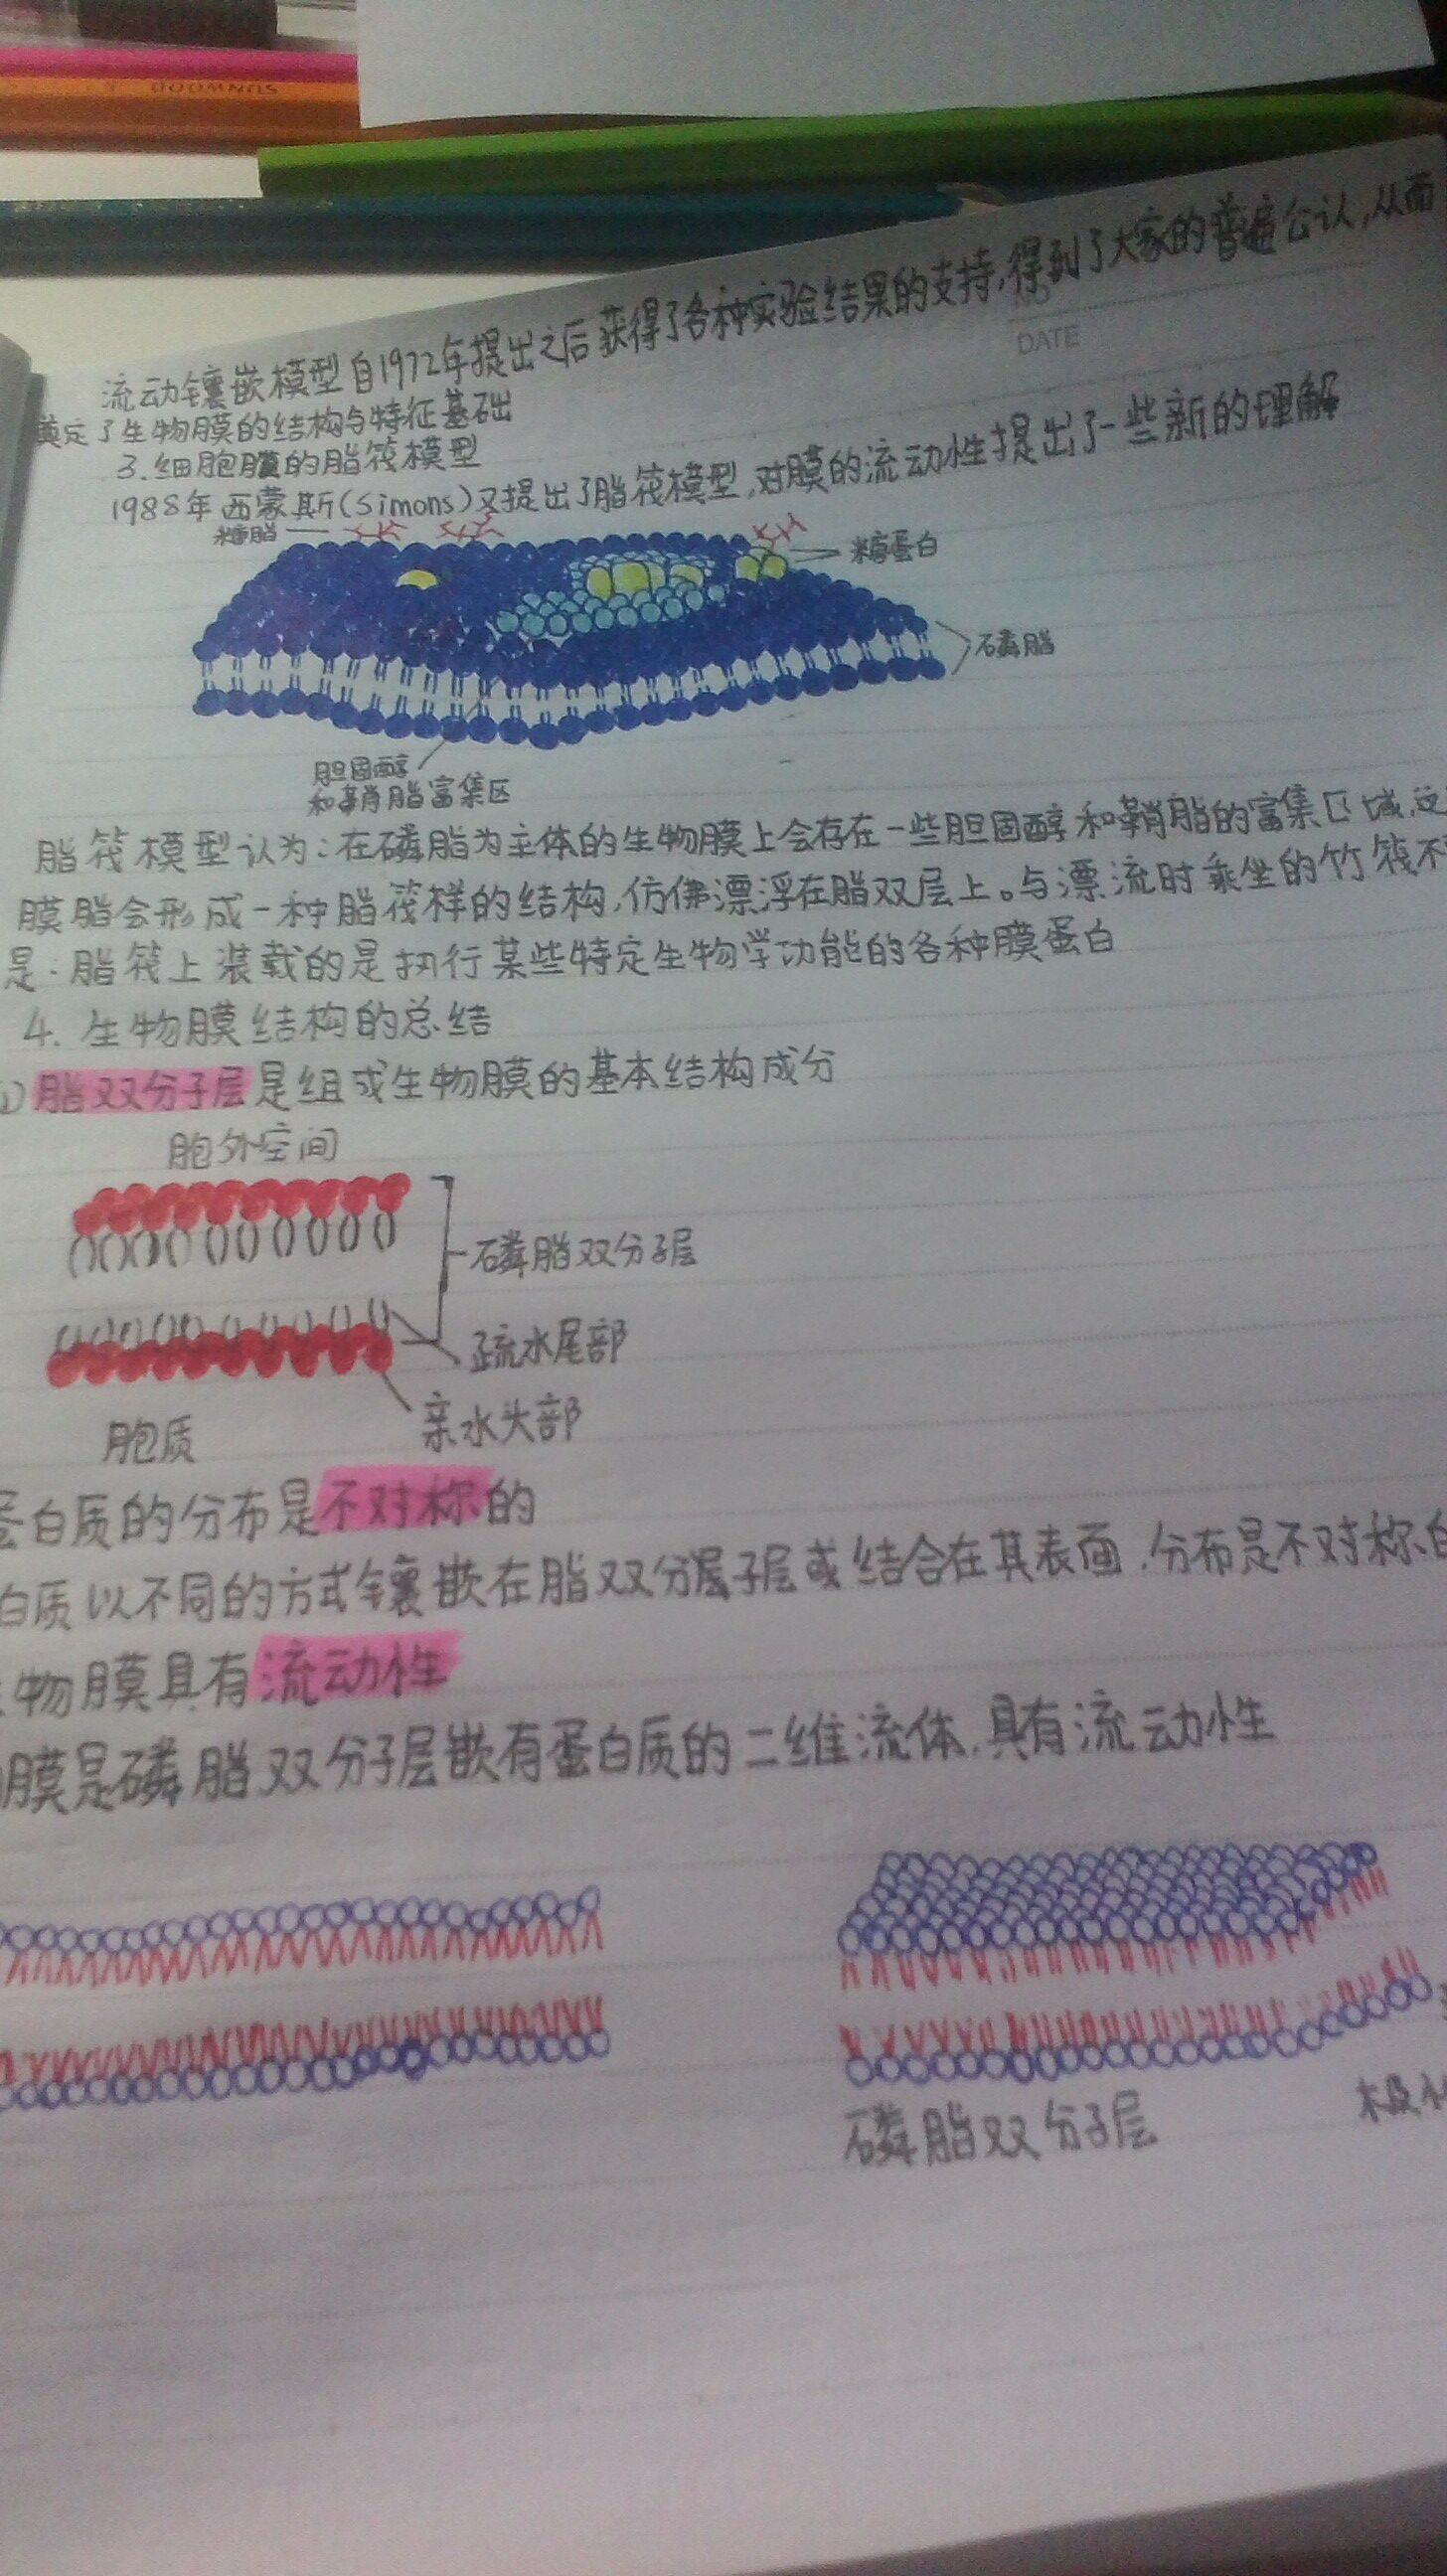 SUNWOOD
NO
DATE
流动镶嵌模型自1972年提出之后获得了各种实验结果的支持,得到了大家的普遍公认,从而
奠定了生物膜的结构与特征基础
3.细胞膜的脂筏模型
1988年西蒙斯(Simons)又提出了脂筏模型,对膜的流动性提出了一些新的理解
糖脂
糖蛋白
磷脂
胆固醇
和鞘脂富集区
脂筏模型认为:在磷脂为主体的生物膜上会存在一些胆固醇和鞘脂的富集区域,这
膜脂会形成一种脂筏样的结构,仿佛漂浮在脂双层上。与漂流时乘坐的竹筏不
是:脂筏上装载的是执行某些特定生物学功能的各种膜蛋白
4. 生物膜结构的总结
① 脂双分子层是组成生物膜的基本结构成分
胞外空间
磷脂双分子层
疏水尾部
亲水头部
胞质
蛋白质的分布是不对称的
白质以不同的方式镶嵌在脂双分层子层或结合在其表面,分布是不对称的
生物膜具有流动性
膜是磷脂双分子层嵌有蛋白质的二维流体,具有流动性
磷脂双分子层
极